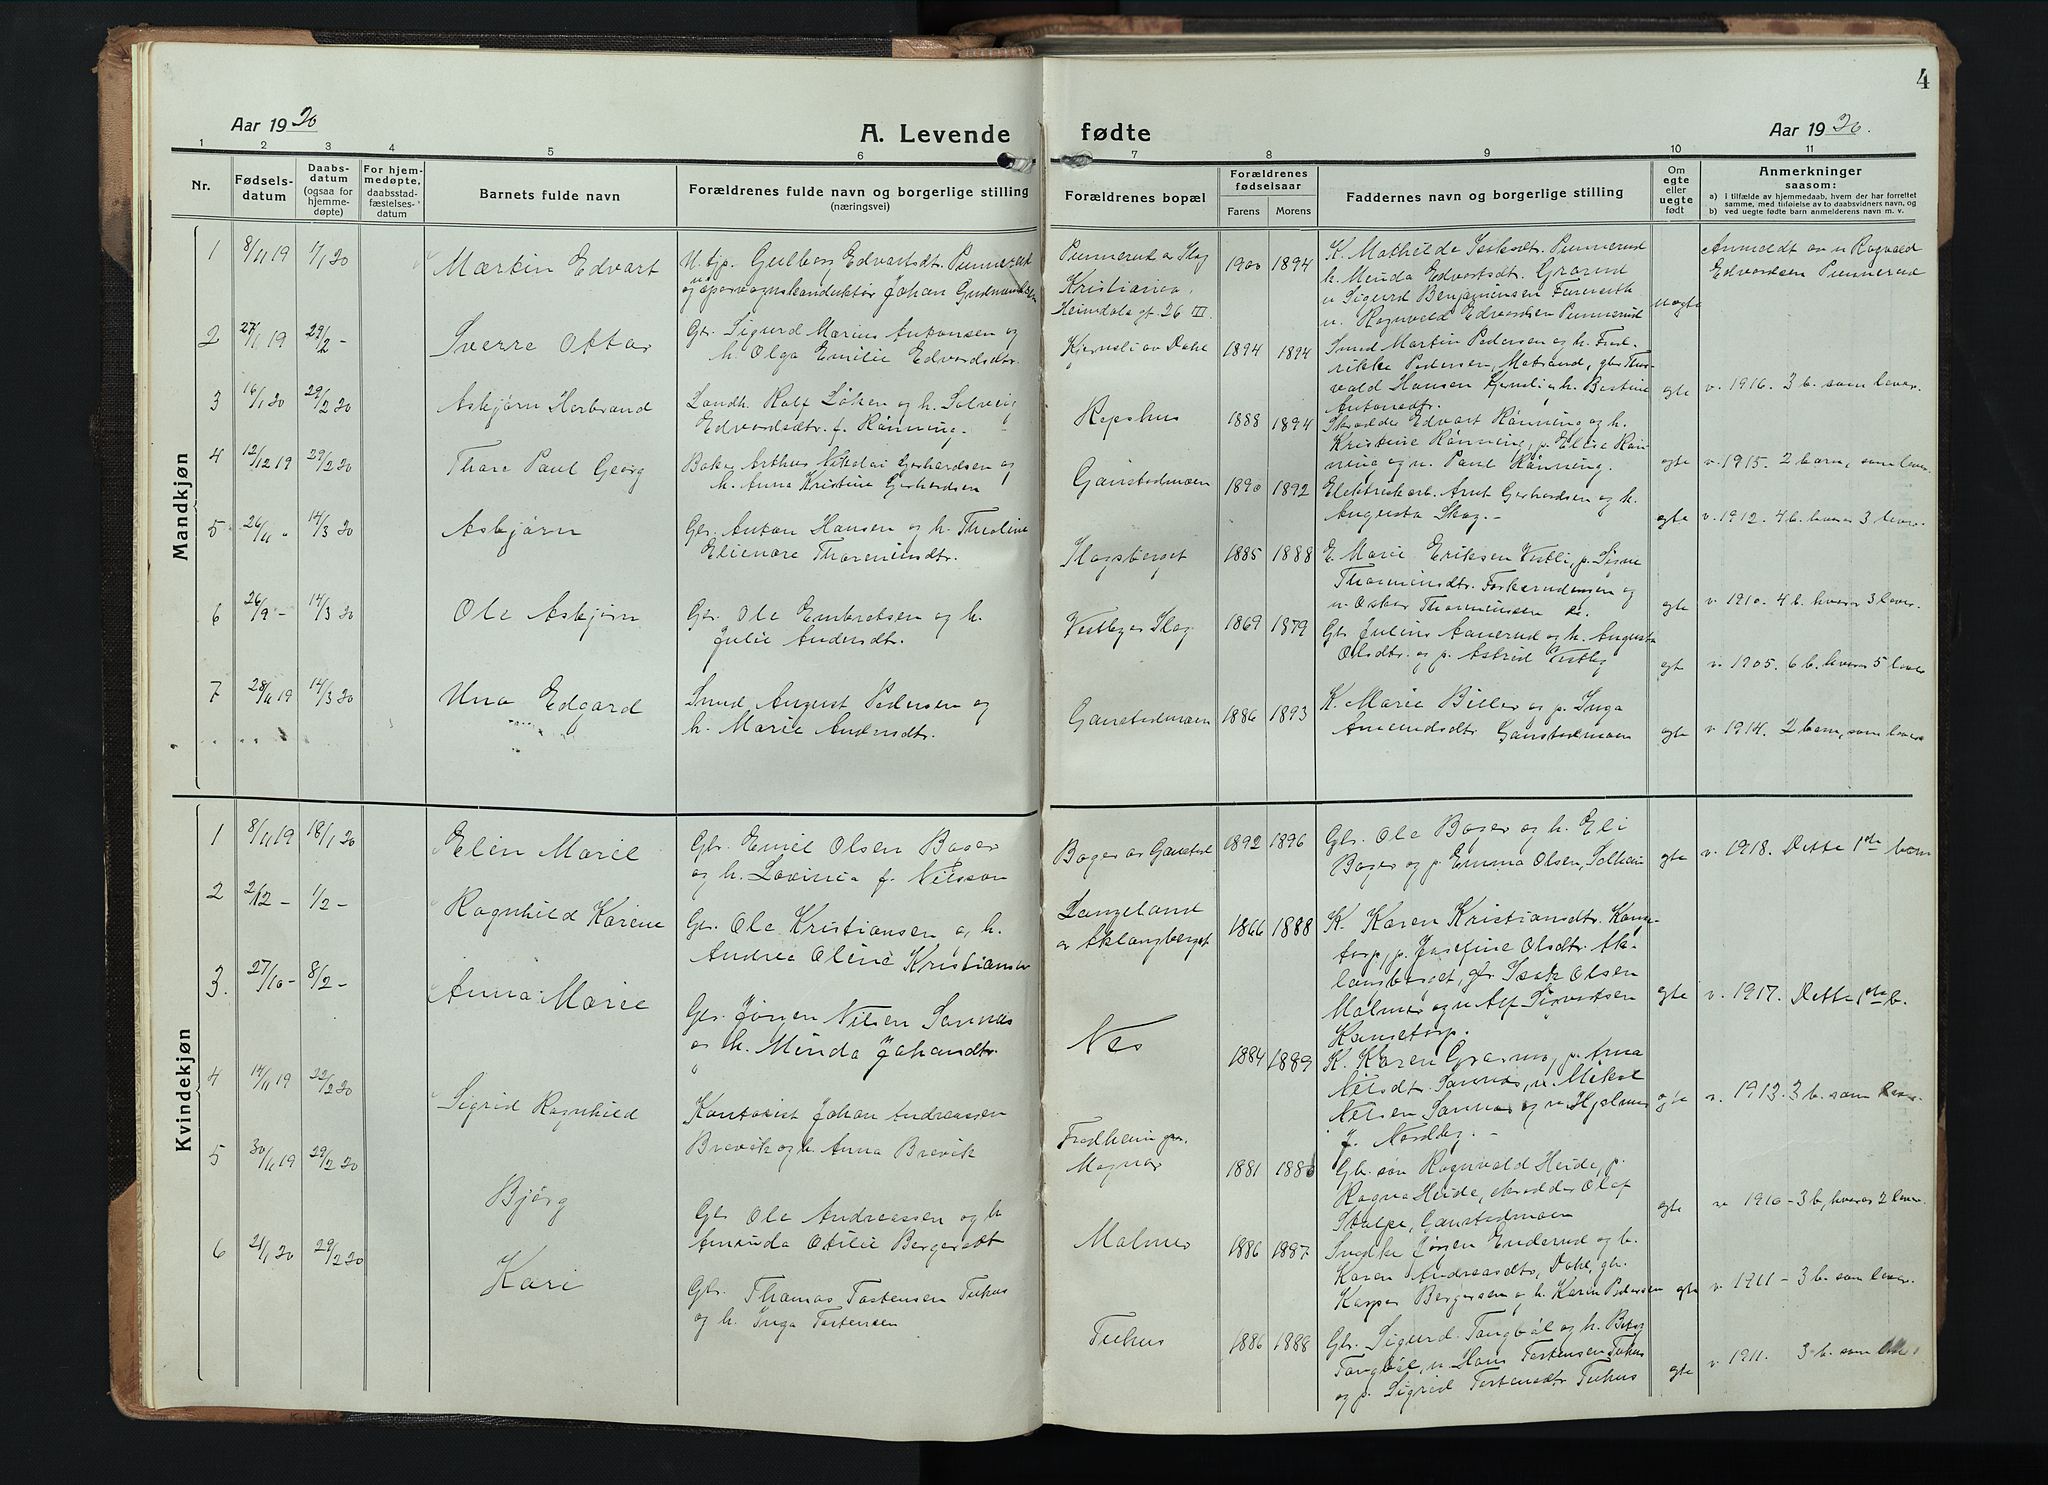 4
Aar 1920
A. Levende fødte
Aar 1920.
1 2 3 4 5 6 7 8 9 10 11
Nr.
Fødselsdatum
Daabsdatum (ogsaa for hjemmedøpte)
For hjemmedøpte, daabsstadfæstelsesdatum
Barnets fulde navn
Forældrenes fulde navn og borgerlige stilling
(næringsvei)
Forældrenes bopæl
Forældrenes fødselsaar
Farens Morens
Faddernes navn og borgerlige stilling
Om egte eller uegte født
Anmerkninger
saasom:
a) i tilfælde av hjemmedaab, hvem der har forrettet samme, med tilføielse av to daabsvidners navn, og
b) ved uegte fødte barn anmelderens navn m. v.
Mandkjøn
1 8/11 19 1/1 20 Martin Edvart
U. tjp. Gulborg Edvartsdt. Punnerud
og sporvognskonduktør Johan Gudmundsen
Punnerud av Skog
Kristiania,
Heimdals gt. 26 III.
1900 1894
K. Mathilde Isaksdt. Punnerud
h. Minda Edvartsdt. Grorud
u. Sigurd Benjaminsen
u. Rognvald Edvardsen Punnerud
uegte
Anmeldt av u Rognvald
Edvardsen Punnerud
2 27/1 19 29/2 - Sverre Ottar
Gbr. Sigurd Marius Antonsen og
h. Olga Emilie Edvardsdtr.
Kjernsli av Dahl
1894 1894
Smed Martin Pedersen og h. Fredrikke
Pedersen, Matrand, gbr. Thorvald
Hansen Kjernsli og h. Bertine
Antonsdtr.
egte
v. 1916. 3 b. som lever.
3 16/1 20 29/2 20 Asbjørn Herbrand
Landh. Rolf Løken og h. Solveig
Edvardsdtr. f. Rønning.
Repshus
1888 1894
Skrædder Edvart Rønning og h.
Kristine Rønning, p. Elise Rønning
og u. Paul Rønning.
egte
v. 1915. 2 barn, som lever.
4 12/12 19 29/2 20 Thore Paul Georg
Baker Arthur Nikolai Gerhardsen og
h. Anna Kristine Gerhardsen
Gaustadmoen
1890 1892
Elektriskarb. Arnt Gerhardsen og h.
Augusta Skog. -
egte
v. 1912. 4 b. hvorav 3 lever.
5 26/11 " 14/3 20 Asbjørn
Gbr. Anton Hansen og h. Theoline
Elienore Thoremundtr.
Skogsberget
1885 1888
E. Marie Eriksen Vestli, p. Signe
Thormundsdtr.
u. Oskar Thormundsen
egte
v. 1910. 4 b. hvorav 3 lever.
6 26/9 - 14/3 20 Ole Asbjørn
Gbr. Ole Embretsen og h.
Julie Andersdt.
Vestby av Skog
1869 1879
Gbr. Julius Aanerud og h. Augusta
Olsdtr. og p. Astrid Vestby
egte
v. 1905. 6 b. hvorav 5 lever
7 28/11 19 14/3 20 Uno Edgard
Smed August Pedersen og
h. Marie Andersdtr.
Gaustadmoen
1886 1893
K. Marie Biller og p. Inga
Amundsdtr Gaustadmoen
egte
v. 1914. 2 barn, som lever
Kvindekjøn
1 8/11 19 18/1 20 Elin Marie
Gbr. Emil Olsen Boger
og h. Lovinia f. Nilsson
Boger av Gaustad
1892 1896
Gbr. Ole Boger og h. Eli
Boger og p. Emma Olsen, Solheim
egte
v. 1918. Dette 1ste barn
2 2/12 - 1/2 - Ragnhild Karene
Gbr. Ole Kristiansen og h.
Andrea Oline Kristiansdtr
Langeland
av Aklangberget
1866 1888
K. Karen Kristiansdtr. Kansetorp,
p. Josefine Olsdtr. Aklangberget,
gbr. Isak Olsen
Malmer og u Alf Sigvartsen
Kansetorp.
egte
v. 1917. Dette 1ste b.
3. 27/10 - 8/2 - Anna Marie
Gbr. Jørgen Nilsen Sannæs
og h. Minda Johansdtr.
Nes
1884 1889
K. Karen Grasmo, p. Anna
Nilsdt. Sannæs, u. Mikal
Nilsen Sannæs og u. Hjalmar
J. Nordby. -
egte
v. 1913. 3 b. som lever.
4 14/11 19 22/2 20 Sigrid Ragnhild
Kontorist Johan Andreassen
Brevik og h. Anna Brevik
Fredheim
Magnor
1881 1886
Gb. søn Rognvald Heide, p.
Ragna Heide, skrædder Olaf
Stolpe, Gaustadmoen
egte
v 1910 - 3 b, hvorav 2 lever.
5 30/11 19 29/2 20 Bjørg
Gbr. Ole Andreassen og h
Amanda Otilie Bergersdt
Malmer
1886 1887
Snedke Jørgen Enderud og h.
Karen Andreasdtr, Dahl, gb.
Kasper Bergersen og h. Karin Pedersen
egte
v. 1911 - 3 b. som lever.
6 21/1 20 29/2 20 Kari
Gbr. Thomas Tostensen Tuhus
og h. Inga Tostensen
Tuhus
1886 1888
Gbr. Sigurd Tangbøl og h. Berta
Tangbøl, u. Hans Tostensen Tuhus
og p. Sigrid Tostensdtr Tuhus
egte
v. 1911. 3 b. som